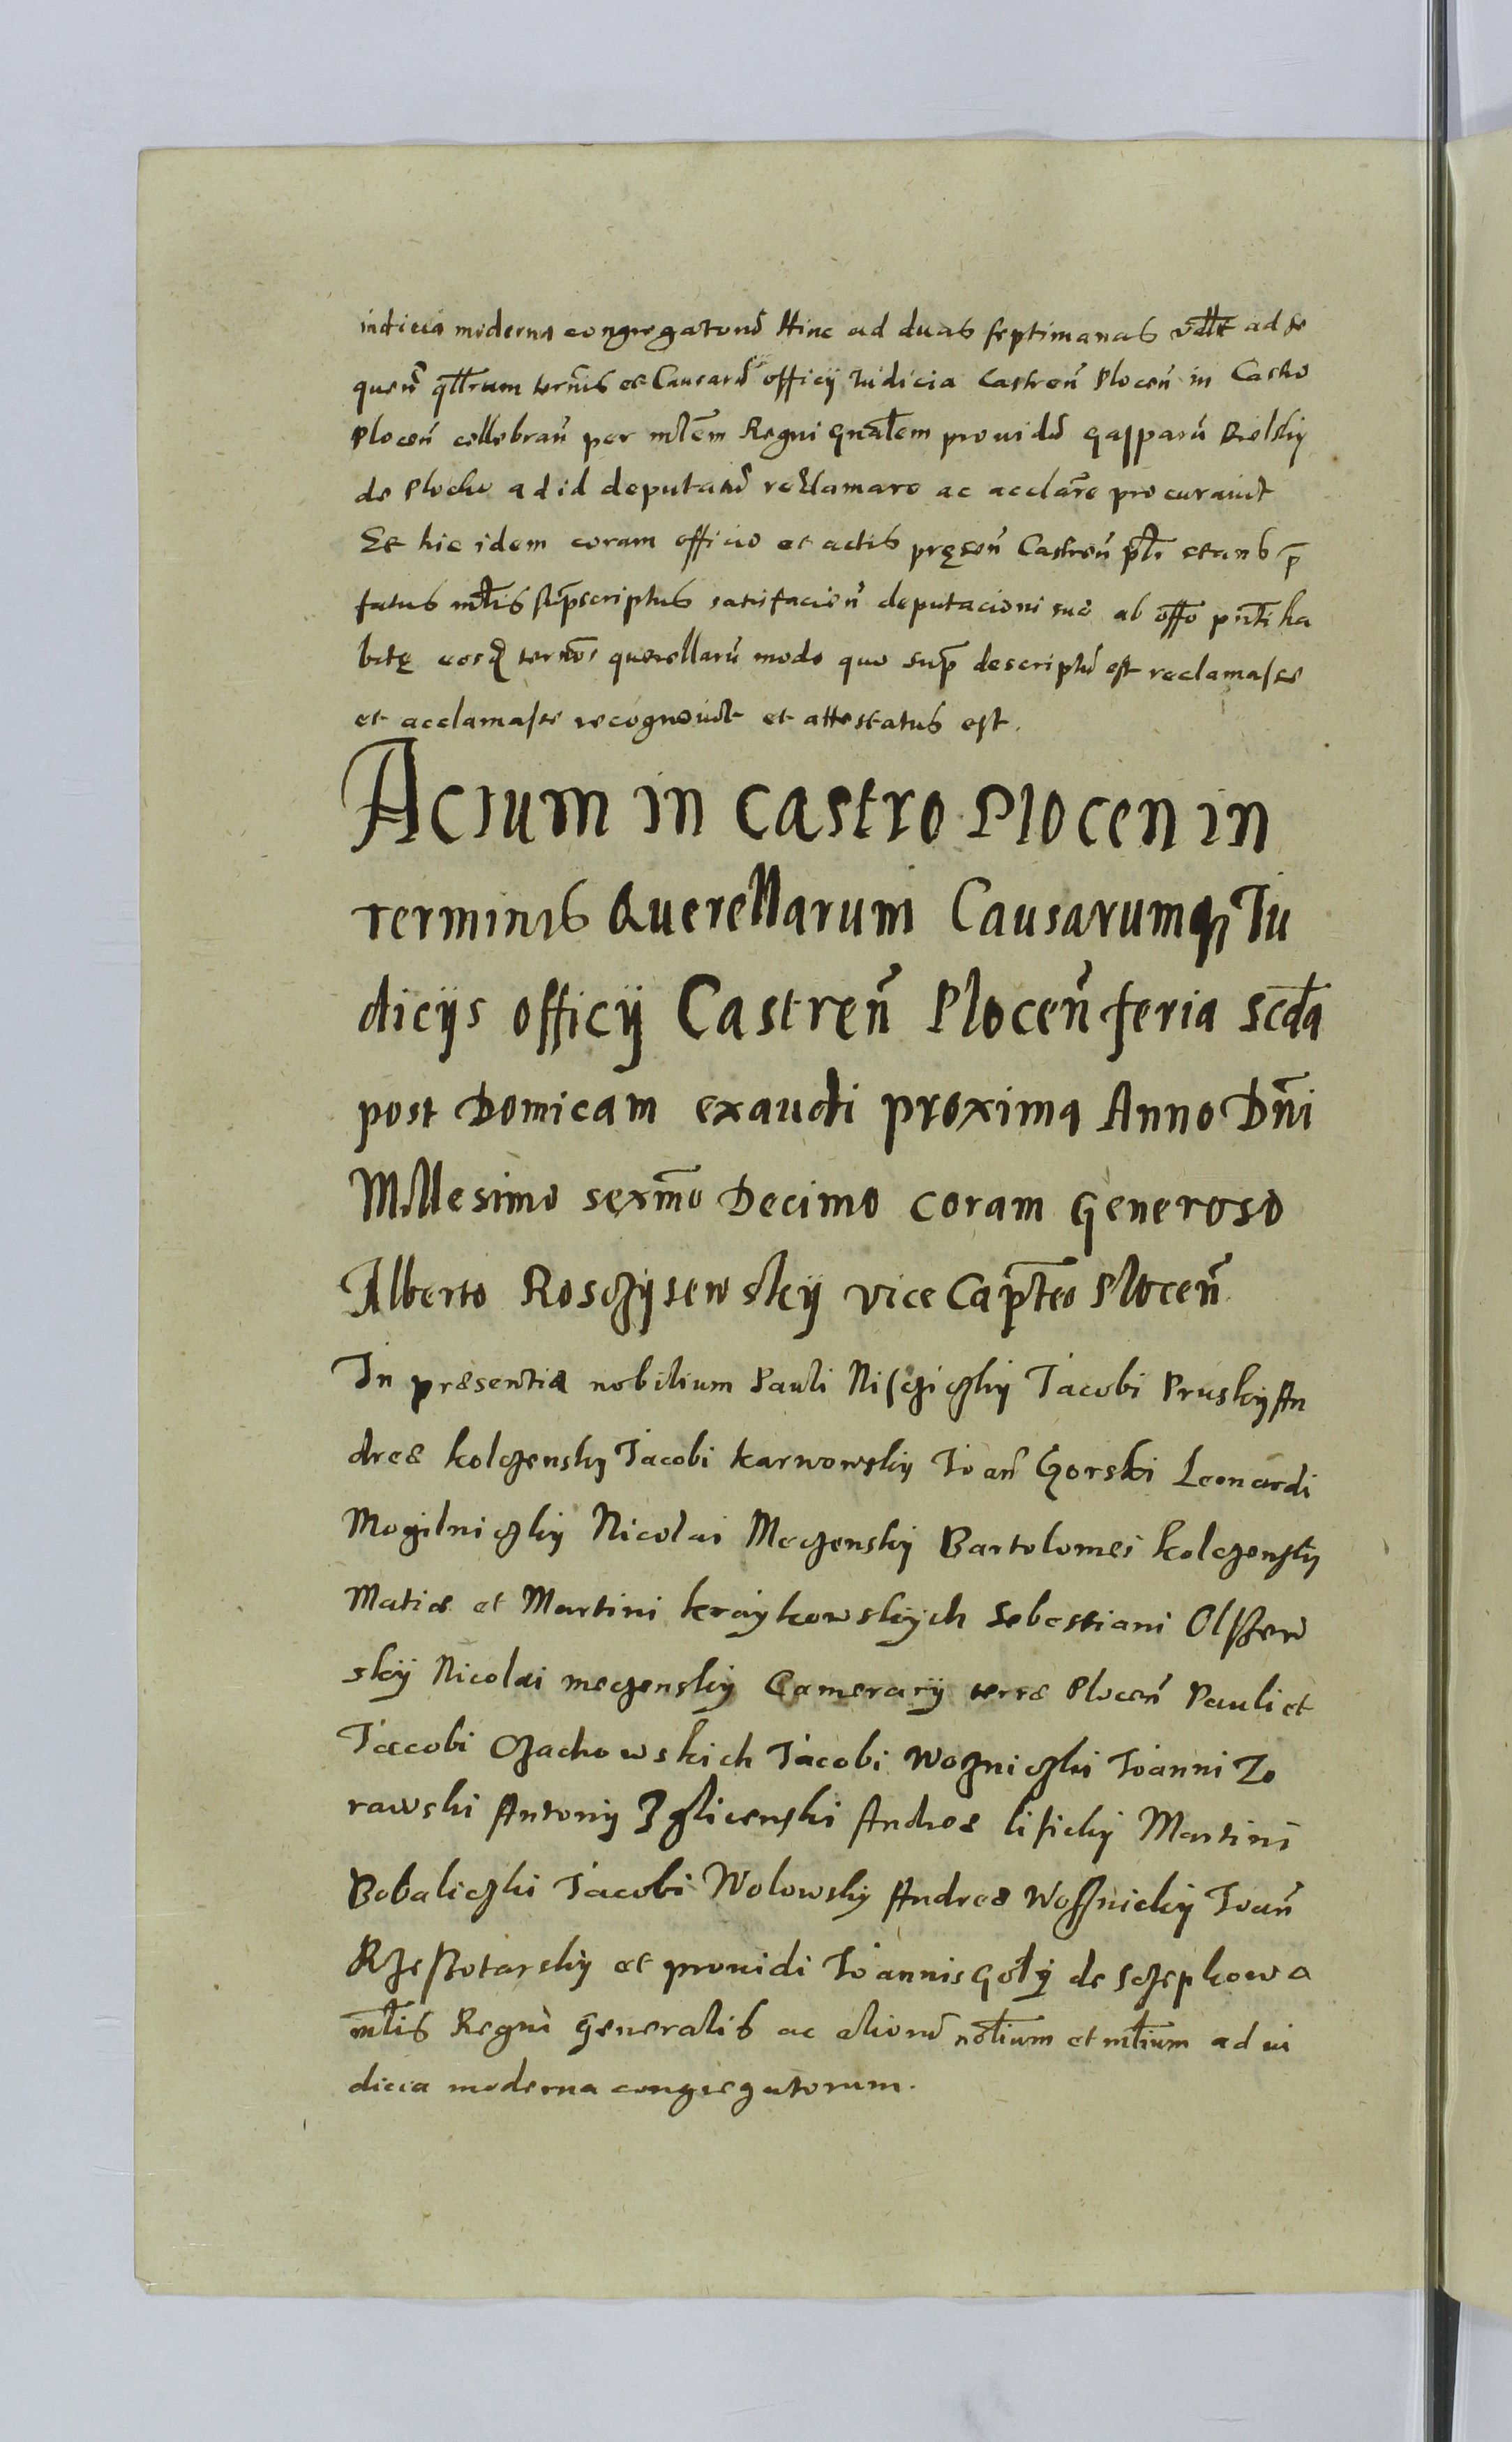 iudicia moderna congregatorū Hinc ad duas septimanas vdlt ad se
quen̄ qllrum termis et Causarū officij Iudicia Castren̄ Plocen̄ in Castro
Plocen̄ cellebran̄ per mlem Regni gnalem prouidū Gasparū Bielsky
de Plocko ad id deputatū reclamare ac acclāre procurauit
Et hic idem coram officio et actis pręsen̄ Castren̄ plr stans p̄
fatus mlis sup̄scriptus satisfacien̄ deputacioni suę ab offo pnti ha
bitę eosq termos querellarū modo quo sup̄ descriptū est reclamasse
et acclamasse recognouit et attestatus est.
Actum in Castro Plocen in
terminis Querellarum Causarumq Iu
dicijs officij Castren̄ Plocen̄ feria scda
post Domicam exaudi proxima Anno Dn̄i
Millesimo sexmo Decimo coram Generoso
Alberto Rosczysewskij vice Capteo Plocen̄
In præsentia nobilium Pauli Niscziczky Iacobi Prusky An
dreæ kolczensky Iacobi karwowsky Ioan̄ Gorski Leonardi
Mogilniczky Nicolai Meczensky Bartolomei kolczensky
Matiæ et Martini kraykowskych Sebastiani Olszew
skij Nicolai meczensky Camerarij terræ Plocen̄ Pauli et
Iacobi Czachowskich Iacobi Wozniczki Ioanni Zo
rawski Antonij Zglicenski Andreæ lisicky Martini
Bobaliczki Iacobi Wolowsky Andreæ Wossnicky Ioan̄
Rzeszotarsky et prouidi Ioannis Goly de Sczepkowa
mlis Regni Generalis ac aliorū nolium et mlium ad iu
dicia moderna congregatorum.